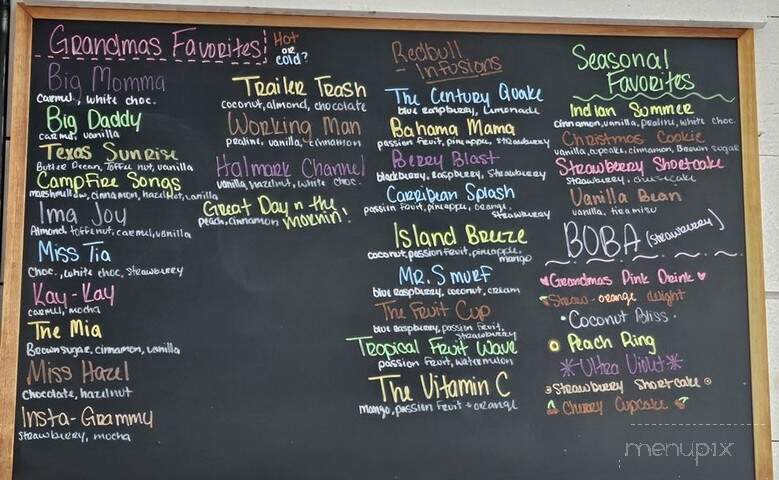 Grandmas Favorites!
Hot
or
cold?
Big Momma
carmel, white choc.
Big Daddy
carmel, vanilla
Texas Sunrise
Butter Pecan, Toffee nut, vanilla
CampFire Songs
marshmellow, cinnamon, hazelnut, vanilla
Ima Joy
Almond, toffenut, carmel, vanilla
Miss Tia
choc., white choc, strawberry
Kay-Kay
carmel, mocha
The Mia
Brown sugar, cinnamon, vanilla
Miss Hazel
chocolate, hazelnut
Insta-Grammy
strawberry, mocha
Trailer Trash
coconut, almond, chocolate
Working Man
praline, vanilla, cinnamon
Halmark Channel
vanilla, hazelnut, white choc.
Great Day n the
peach, cinnamon mornin!
Redbull
- Infusions
The Century Quake
blue raspberry, lemonade
Bahama Mama
passion fruit, pineapple, strawberry
Berry Blast
blackberry, raspberry, strawberry
Carribean Splash
passion fruit, pineapple, orange,
strawberry
Island Breeze
coconut, passion fruit, pineapple,
mango
Mr. Smurf
blue raspberry, coconut, cream
The Fruit Cup
blue raspberry, passion fruit,
strawberry
Tropical Fruit Wave
passion fruit, watermelon
The Vitamin C
mango, passion fruit + orange
Seasonal
Favorites
Indian Summer
cinnamon, vanilla, praline, white choc.
Christmas Cookie
vanilla, cupcake, cinnamon, Brown sugar
Strawberry Shortcake
strawberry, cheesecake
Vanilla Bean
vanilla, tiramisu
BOBA (strawberry)
Grandmas Pink Drink
Straw-orange delight
Coconut Bliss
Peach Ring
Ultra Violet
Strawberry Shortcake
Cherry Cupcake
menupix